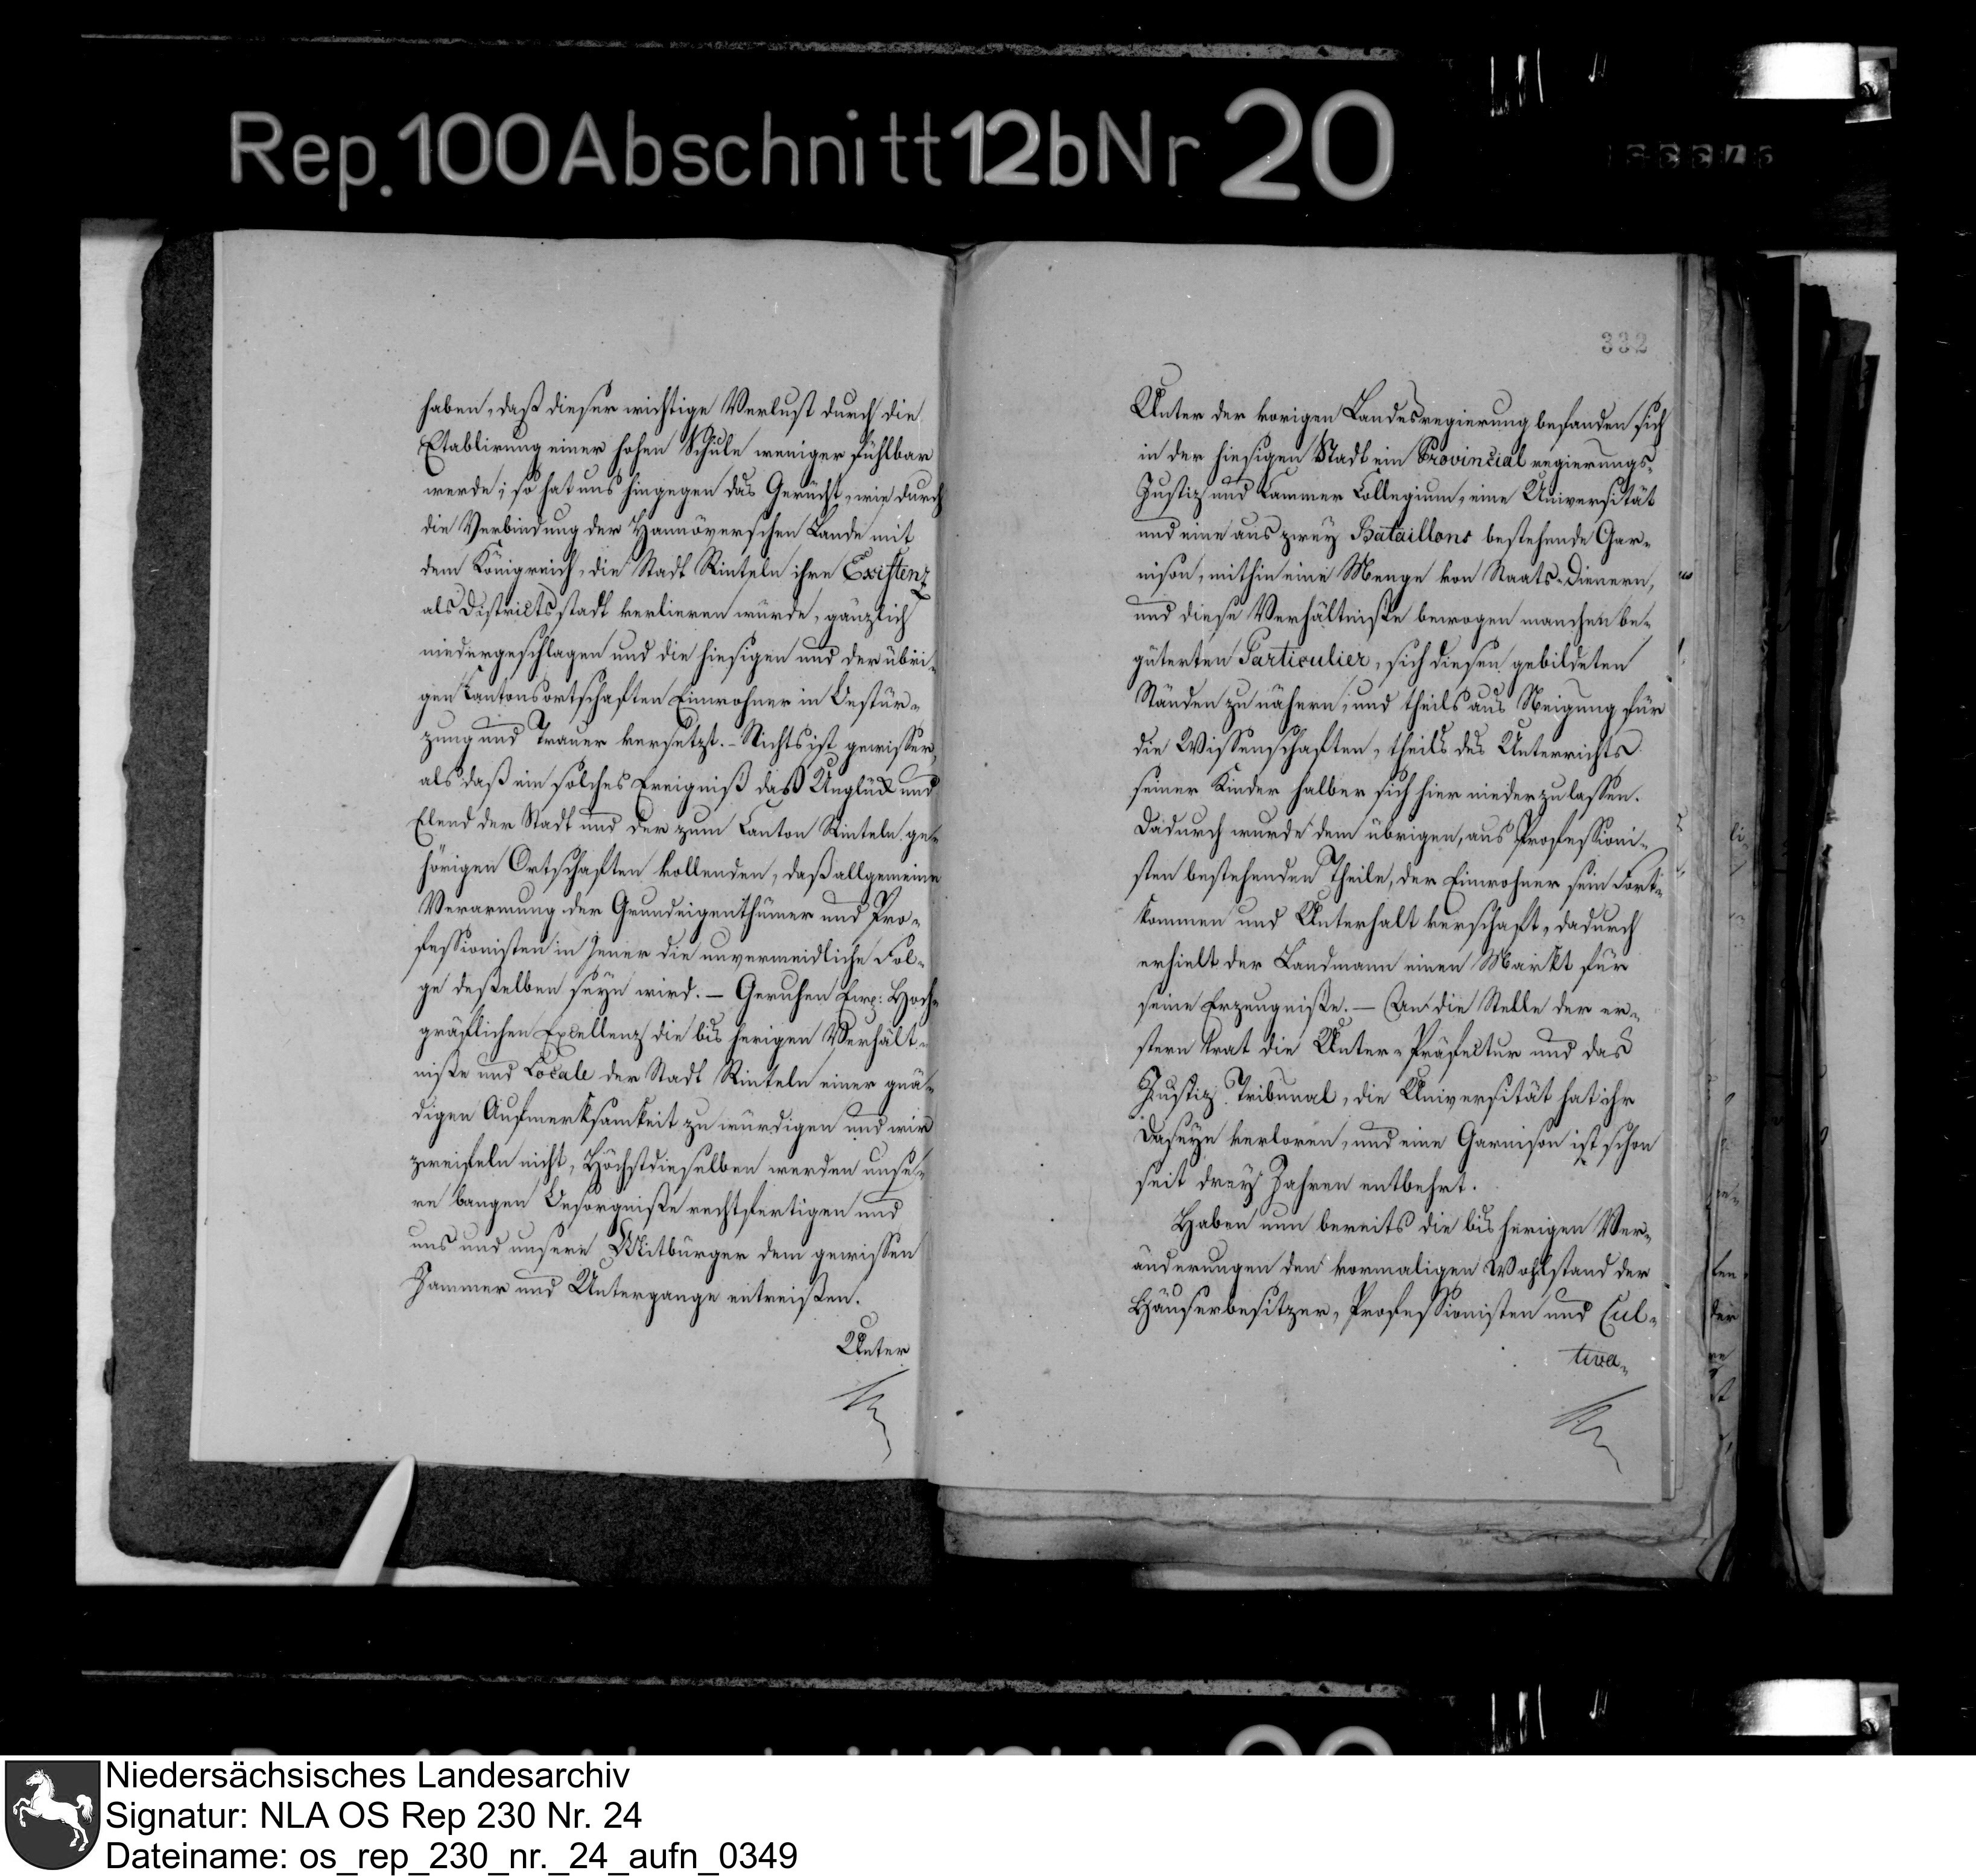 Rep. 100 Abschnitt 12b Nr 20
haben, daß dieser wichtige Verlust durch die
Etablirung einer hohen Schule weniger fühlbar
werde; so hat uns hingegen das Gerücht, wie durch
die Verbindung der Hannöverschen Lande mit
dem Königreich, die Stadt Rinteln ihre Existenz
als Districtsstadt verlieren würde, gänzlich
niedergeschlagen und die hiesigen und der übri-
gen Cantonsortschaften Einwohner in Bestür-
zung und Trauer versetzt. - Nichts ist gewisser,
als daß ein solches Ereigniß das Unglück und
Elend der Stadt und der zum Canton Rinteln ge-
hörigen Ortschaften vollenden, daß allgemeine
Verarmung der Grundeigenthümer und Pro-
fessionisten in Jener die unvermeidliche Fol-
ge deßelben seyn wird. — Geruhen Ew: Hoch-
gräflichen Excellenz die bisherigen Verhält-
niße und Locale der Stadt Rinteln einer gnä-
digen Aufmerksamkeit zu würdigen und wir
zweifeln nicht, Höchstdieselben werden unse-
re bangen Besorgniße rechtfertigen und
uns und unsere Mitbürger dem gewissen
Jammer und Untergange entreißen.
Unter
332
Unter der vorigen Landesregierung befanden sich
in der hiesigen Stadt ein Provincial regierungs-
Justiz und Cammer Collegium, eine Universität
und eine aus zwey Bataillons bestehende Gar-
nison, mithin eine Menge von Staats-Dienern,
und diese Verhältniße bewogen manchen be-
güterten Particulier, sich diesen gebildeten
Ständen zu nähern, und theils aus Neigung für
die Wissenschaften, theils des Unterrichts
seiner Kinder halber sich hier niederzulassen.
Dadurch wurde dem übrigen, aus Professioni-
sten bestehenden Theile, der Einwohner sein Fort-
kommen und Unterhalt verschaft, dadurch
erhielt der Landmann einen Markt für
seine Erzeugniße. — An die Stelle der er-
stern trat die Unter-Präfectur und das
Justiz Tribunal, die Universität hat ihr
Daseyn verloren, und eine Garnison ist schon
seit drey Jahren entbehrt.
Haben nun bereits die bisherigen Ver-
änderungen den vormaligen Wohlstand der
Häuserbesitzer, Professionisten und Cul-
tiva-
Niedersächsisches Landesarchiv
Signatur: NLA OS Rep 230 Nr. 24
Dateiname: os_rep_230_nr._24_aufn_0349